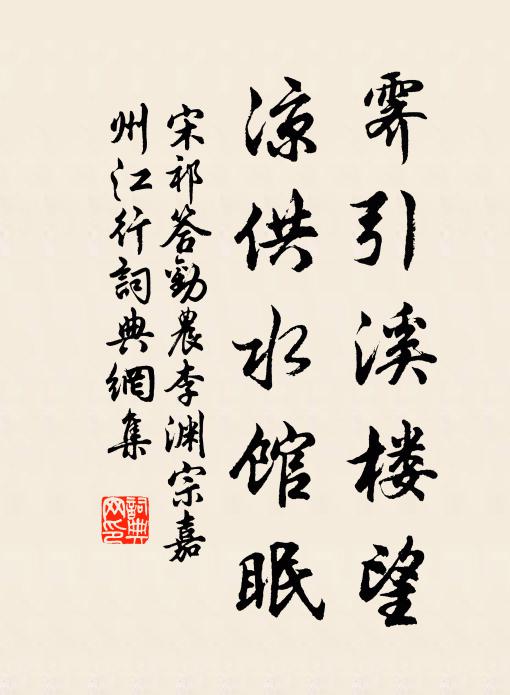 霁引溪楼望
凉供水馆眠
宋祁答劝農李渊宗嘉
州江行詞典網集
詞典网印